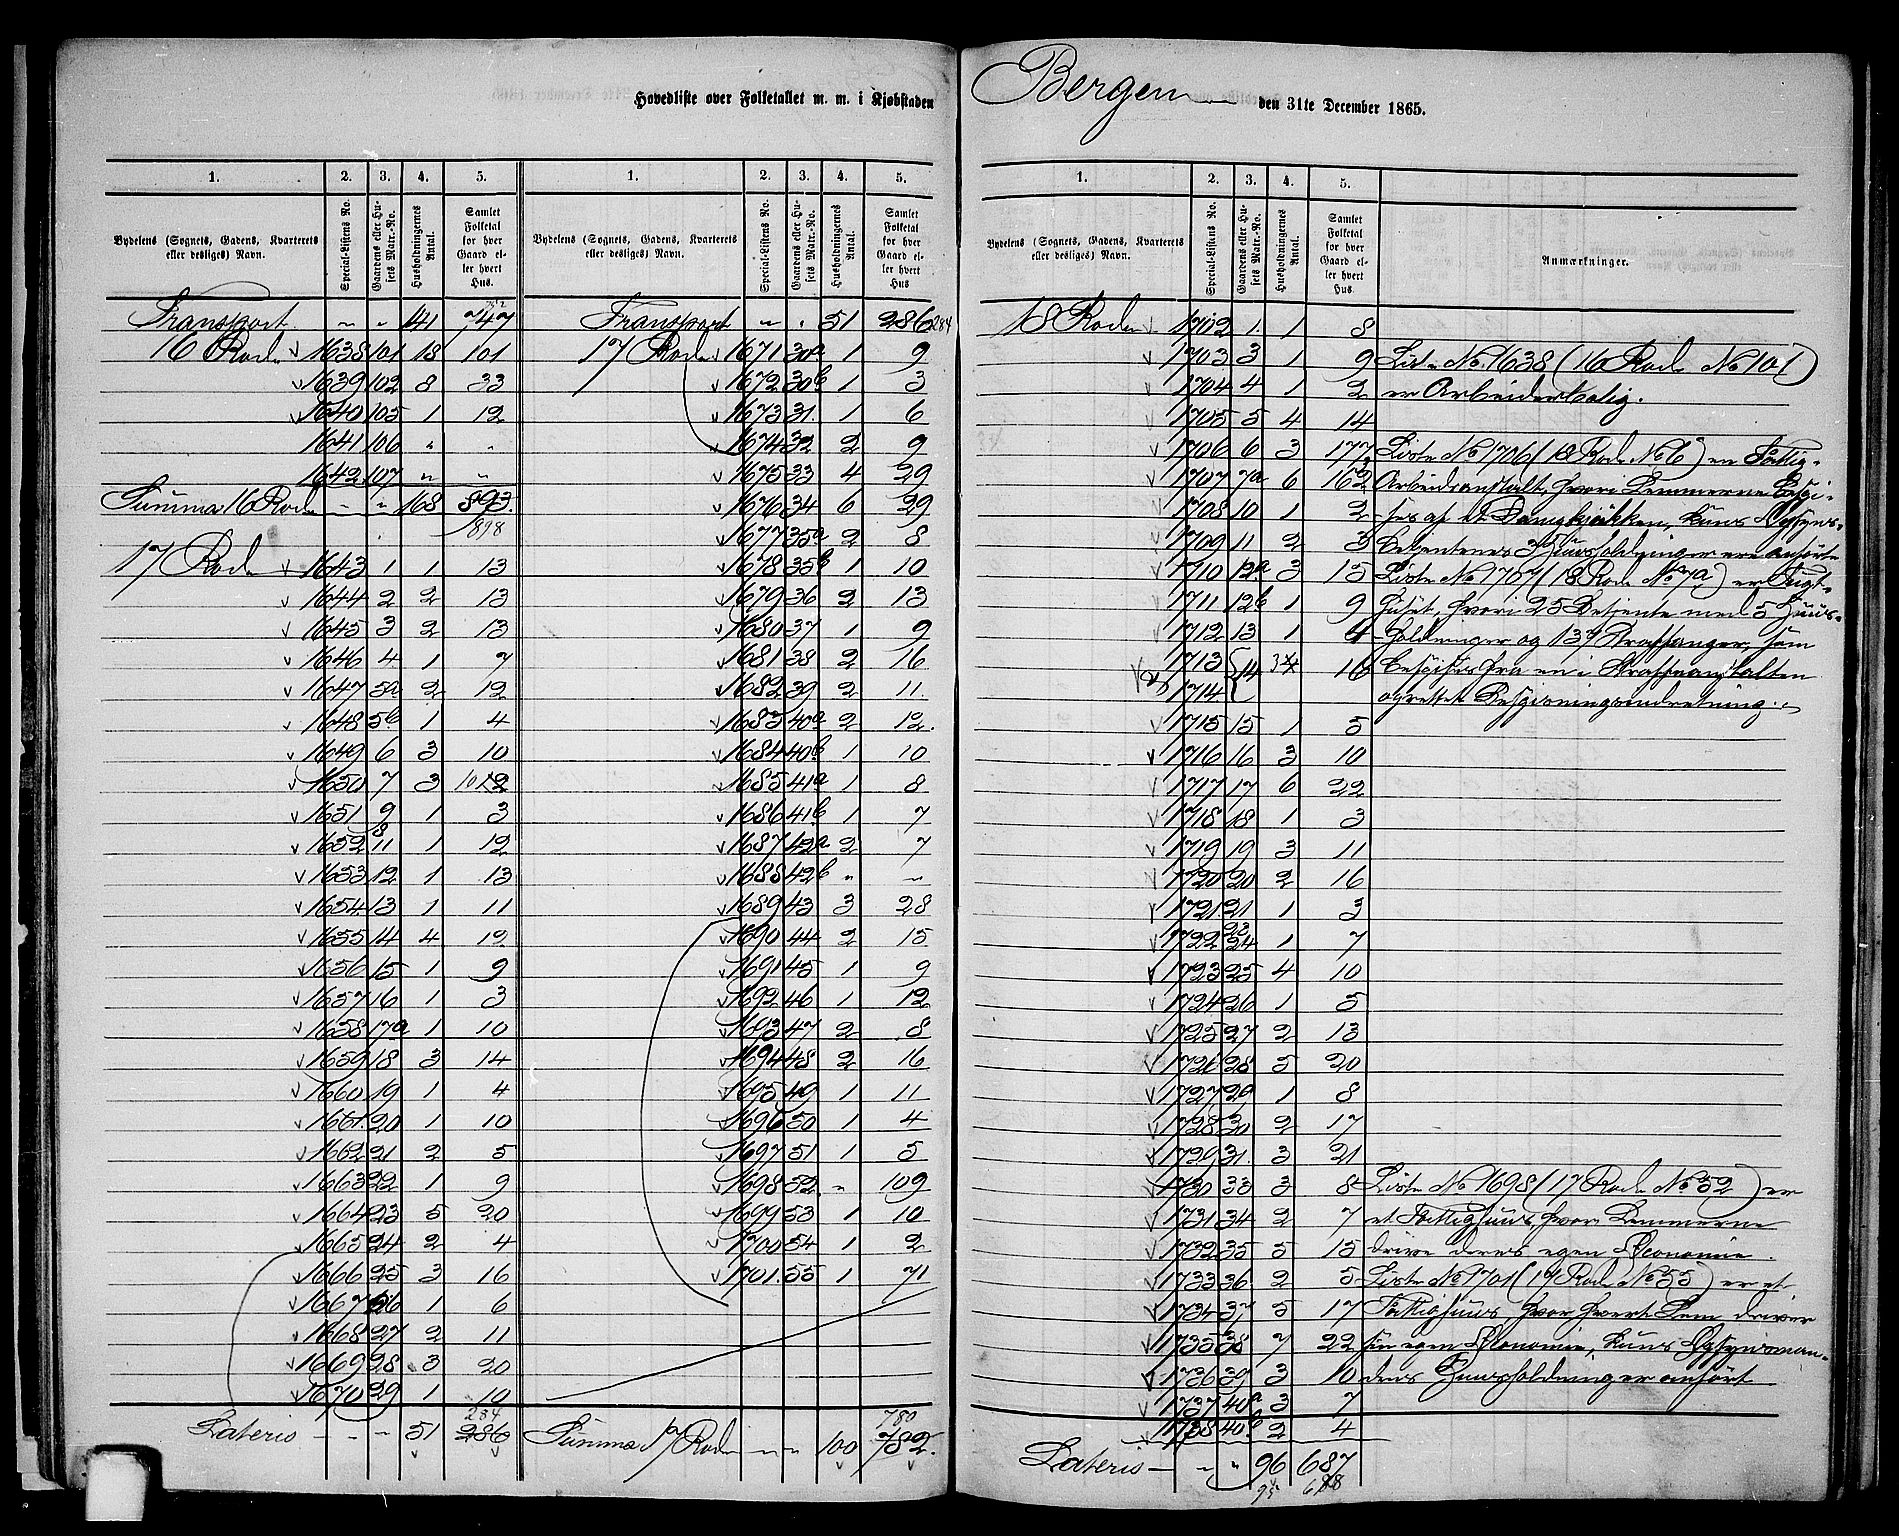 Hovedliste over Folketallet m. m. i Kjøbstaden Bergen den 31te December 1865.
1. 2. 3. 4. 5. 1. 2. 3. 4. 5.
Bydelens (Sognets, Gadens, Kvarterets eller desliges) Navn. Special-Listens No. Gaardens eller Husets Matr.-No. Husholdningernes Antal. Samlet Folketal for hver Gaard eller hvert Hus.
Bydelens (Sognets, Gadens, Kvarterets eller desliges) Navn. Special-Listens No. Gaardens eller Husets Matr.-No. Husholdningernes Antal. Samlet Folketal for hver Gaard eller hvert Hus
Transport " " 141 747 752
16 Rode 1638 101 18 101
1639 102 8 33
1640 105 1 12
1641 106 " "
1642 107 " "
Summa 16 Rode " " 168 893.
898
17 Rode 1643 1 1 13
1644 2 2 13
1645 3 2 13
1646 4 1 7
1647 5a 2 12
1648 5b 1 4
1649 6 3 10
1650 7 3 10 12
1651 9 1 3
1652 8 11 1 12
1653 12 1 13
1654 13 1 11
1655 14 4 12
1656 15 1 9
1657 16 1 3
1658 17a 1 10
1659 18 3 14
1660 19 1 4
1661 20 1 10
1662 21 2 5
1663 22 1 9
1664 23 5 20
1665 24 2 4
1666 25 3 16
1667 26 1 6
1668 27 2 11
1669 28 3 20
1670 29 1 10
Lateris " " 51 286 284
Transport " " 51 286 284
17 Rode 1671 30a 1 9
1672 30b 1 3
1673 31. 1 6
1674 32 2 9
1675 33 4 29
1676 34 6 29
1677 35a 2 8
1678 35b 1 10
1679 36 2 13
1680 37 1 9
1681 38 2 16
1682 39 2 11
1683 40a 2 12.
1684 40b 1 10
1685 41a 1 8
1686 41b 1 7
1687 42a 2 7
1688 42b " "
1689 43 3 28
1690 44 2 15
1691 45 1 9
1692 46 1 12
1693 47 2 8
1694 48 2 16
1695 49 1 11
1696 50 1 4
1697 51 1 5
1698 52. " 109
1699 53 1 10
1700 54 1 2
1701. 55 1 71
Summa 17 Rode " " 100 782. 780
1. 2. 3. 4. 5.
Bydelens (Sognets, Gadens, Kvarterets eller desliges) Navn. Special-Listens No. Gaardens eller Husets Matr.-No. Husholdningernes Antal. Samlet Folketal for hver Gaard eller hvert Hus. Anmærkninger.
18 Rode 1702 1. 1 8
1703 3 1 9 Liste No 1638 (16 Rode No 101)
1704 4 1 2 er Arbeiderbolig.
1705 5 4 14
1706 6 3 177 Liste No 1706 (18 Rode No 6) en Fattig-
1707 7a 6 162 Arbeidsanstalt, hvori Lemmerne bespi-
1708 10 1 2 -ses af et Dampkjøkken, kuns Opsyns-
1709 11 2 3 betjentenes Huusholdninger ere anførte
1710 12a 3 15 Liste No 1707 (18 Rode No 7a) er Tugt-
1711 12b 1 9 huset, hvori 25 Betjente med 5 Huus-
1712 13 1 4 -holdninger og 137 Straffanger, som
1713 14 3 16 bespises fra en i Straffeanstalten
1714 oprettet Bespisningsindretning.
1715 15 1 5
1716 16 3 10
1717 17 6 22
1718 18 1 3
1719 19 3 11
1720 20 2 16
1721 21 1 3
1722 23 24 1 7
1723 25 4 10
1724 26 1 5
1725 27 2 13
1726 28 5 20
1727 29 1 8
1728 30 2 17
1729 31. 3 21
1730 33 3 8 Liste No 1698 (17 Rode No 52) er
1731 34 2 7 et Fattighuus, hvor Lemmerne
1732 35 5 15 drive deres egen Økonomie.
1733 36 2 5 Liste No 1701 (17 Rode No 55) er et
1734 37 5 17 Fattighuus hvor hvert Lem driver
1735 38 7 22 sin egen Økonomie, kuns Opsynsman-
1736 39 3 10 dens Huusholdninger anført
1737 40a 3 7
1738 40b 2 4
Lateris " " 96 687
95 688